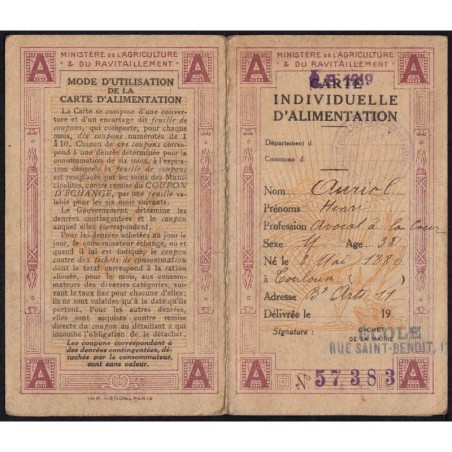 MINISTÈRE DE L'AGRICULTURE
& DU RAVITAILLEMENT
A A
MODE D'UTILISATION
DE LA
CARTE D'ALIMENTATION
La Carte se compose d'une couver-
ture et d'un encartage dit feuille de
coupons, qui comporte, pour chaque
mois, dix coupons numérotés de 1
à 10. Chacun de ces coupons corres-
pond à une denrée déterminée pour la
consommation de six mois, à l'expira-
tion desquels la feuille de coupons
est remplacée par les soins des Muni
cipalités, contre remise du COUPON
D'ÉCHANGE, par une feuille va-
lable pour les six mois suivants.
Le Gouvernement détermine les
denrées contingentées et les coupons
auxquelles elles correspondent.
Pour les denrées achetées au jour le
jour, le consommateur échange, s'il y a lieu,
contre des tickets de consommation
dont le total correspond à la ration
allouée, pour le mois, aux
consommateurs des diverses catégories, sui-
vant l'avis pris chaque mois d'eux.
Ils ne sont valables qu'à la date qu'ils
portent. Pour les autres denrées,
elles sont acquises contre remise directe
du coupon au détaillant à qui
incombe l'obligation de le détacher.
Les coupons correspondant à
des denrées contingentées, dé-
tachés par le consommateur,
sont sans valeur.
A A
IMP. HÉNON, PARIS
MINISTÈRE DE L'AGRICULTURE
& DU RAVITAILLEMENT
A A
1919
CARTE
INDIVIDUELLE
D'ALIMENTATION
Département d
Commune d
Nom Auriol
Prénoms Henri
Profession Avocat à la Cour
Sexe M Age 38
Né le 8 Mai 1880
à Toulouse
Adresse Bd Arts 11
Délivrée le 19
Signature : CACHET
DE LA MAIRIE
RUE SAINT-BENOIT, 1
A A
No 57383